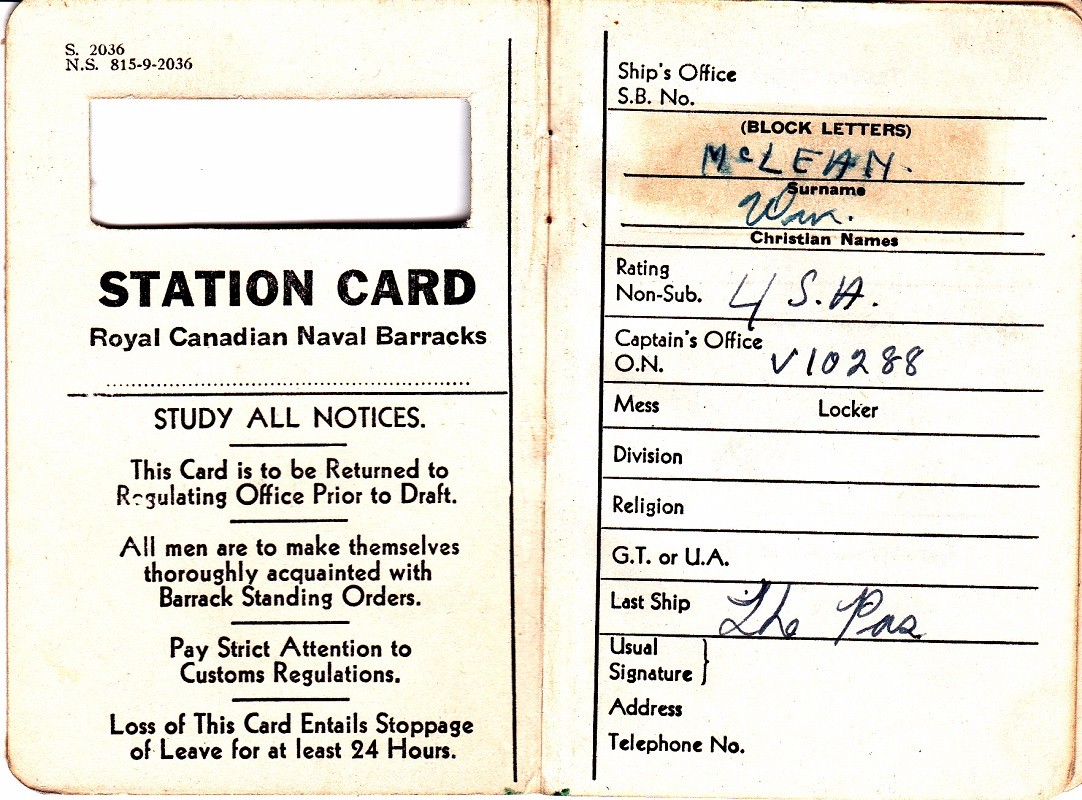 S. 2036
N.S. 815-9-2036
STATION CARD
Royal Canadian Naval Barracks
STUDY ALL NOTICES.
This Card is to be Returned to
Regulating Office Prior to Draft.
All men are to make themselves
thoroughly acquainted with
Barrack Standing Orders.
Pay Strict Attention to
Customs Regulations.
Loss of This Card Entails Stoppage
of Leave for at least 24 Hours.
Ship's Office
S.B. No.
(BLOCK LETTERS)
McLEAN.
Surname
Wm.
Christian Names
Rating
Non-Sub. 4 S.A.
Captain's Office
O.N. V10288
Mess Locker
Division
Religion
G.T. or U.A.
Last Ship The Pas
Usual
Signature }
Address
Telephone No.